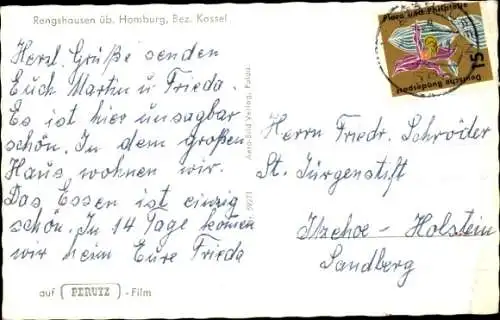 Rengshausen üb. Homburg, Bez. Kassel
Herzl. Grüße senden
Euch Martin u Frieda.
Es ist hier unsagbar
schön. In dem großen
Haus wohnen wir.
Das Essen ist einzig
schön. In 14 Tage komen
wir heim Eure Frieda
auf PERUTZ - Film
Aero-Bild Verlag, Fulda
Deutsche Bundespost
15
Flora und Philatelie
Herrn Friedr. Schröder
St. Jürgenstift
Itzehoe - Holstein
Sandberg